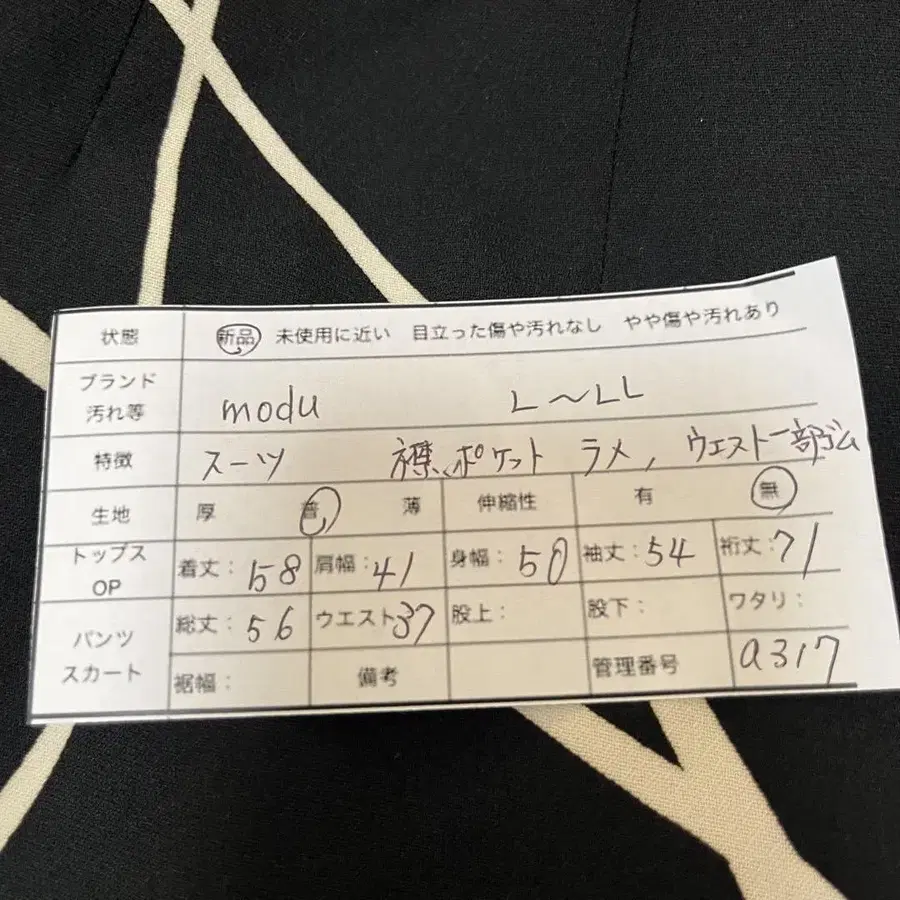 状態 新品 未使用に近い 目立った傷や汚れなし やや傷や汚れあり
ブランド
汚れ等 modu L〜LL
特徴 スーツ 襟、ポケット ラメ, ウエスト一部ゴム
生地 厚 普 薄 伸縮性 有 無
トップス
OP 着丈: 58 肩幅: 41 身幅: 50 袖丈: 54 裄丈: 71
パンツ
スカート 総丈: 56 ウエスト 37 股上: 股下: ワタリ:
裾幅: 備考 管理番号 a317